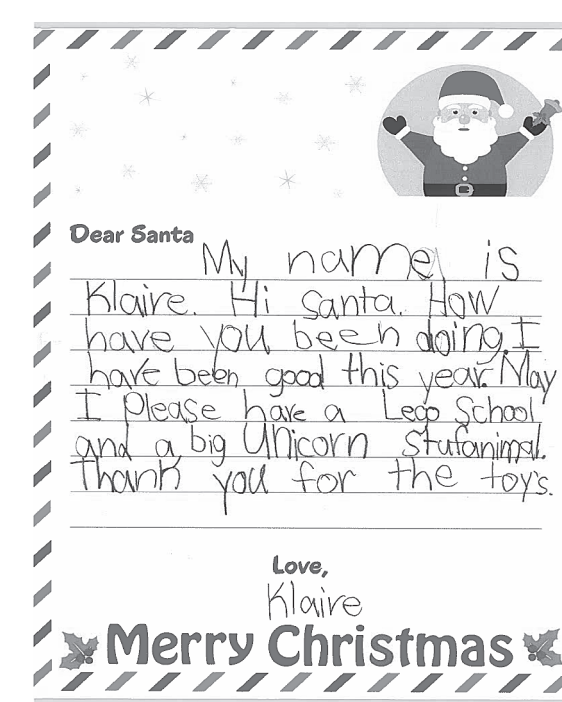 Dear Santa
My name is
Klaire. Hi santa. How
have you been doing. I
have been good this year. May
I Please have a Leco School
and a big Unicorn Stufanimal.
Thank you for the toy's.
Love,
Klaire
Merry Christmas